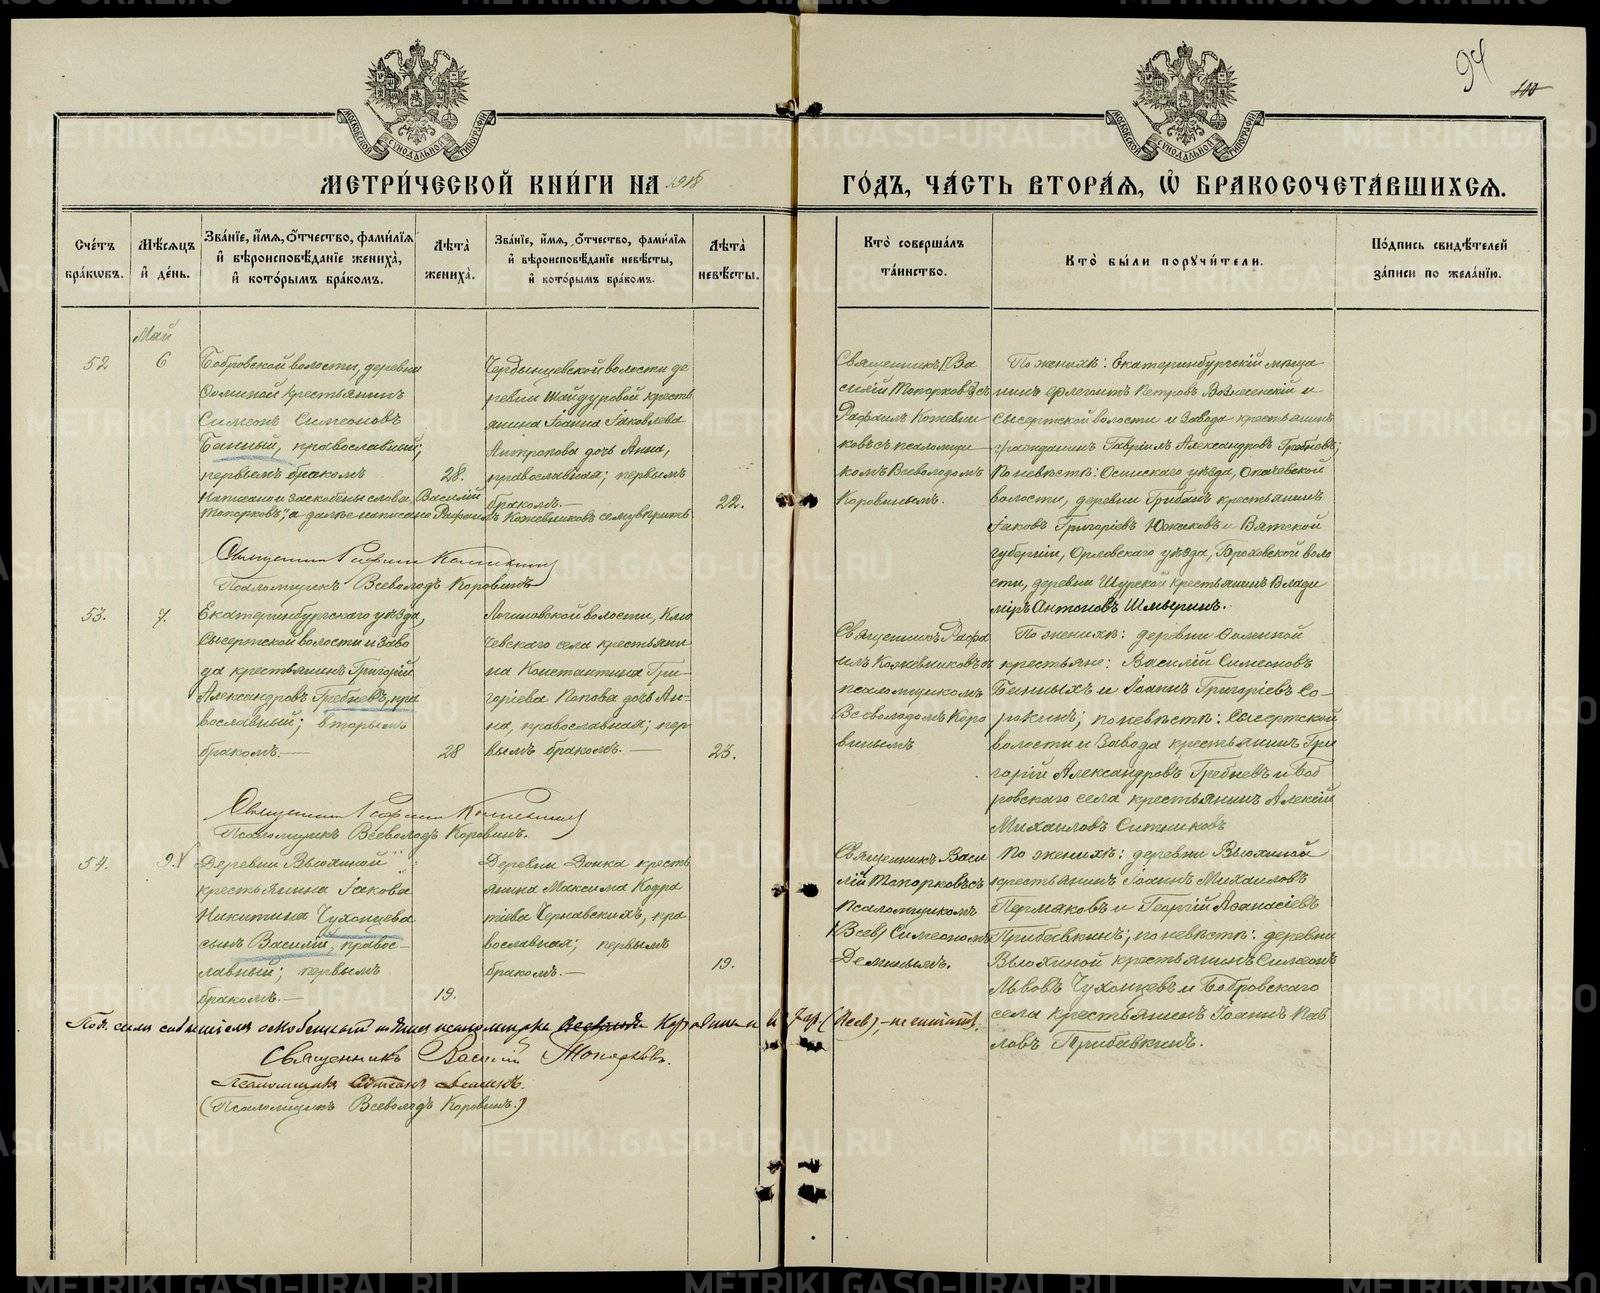 94
МЕТРИ́ЧЕСКОЙ КНИ́ГИ НА 1918
ГО́ДЪ, ЧА́СТЬ ВТОРА́Я, Ѡ БРАКОСОЧЕТА́ВШИХСЯ.
Сче́тъ бра́кѡвъ.
Мѣ́сяцъ и́ де́нь.
Зва́нїе, и́мя, о́тчество, фами́лїя и́ вѣроисповѣ́данїе жениха̀, и́ кото́рымъ бра́комъ.
Лѣ́та жениха̀.
Зва́нїе, и́мя, о́тчество, фами́лїя и́ вѣроисповѣ́данїе невѣ́сты, и́ кото́рымъ бра́комъ.
Лѣ́та невѣ́сты.
Кто̀ соверша́лъ та́инство.
Кто̀ бы́ли поручи́тели.
По́дпись свидѣ́телей за́писи по жела́нїю.
Май
52
6
Бобровской волости, деревни
Фоминой крестьянинъ
Симеонъ Симеоновъ
Банный, православный;
первымъ бракомъ
28.
Написано и заскоблены слова "Василій
Топорковъ", а далѣе написано Рафаилъ Кожевниковъ
Чердынцевской волости де
ревни Шайдуровой кресть
янина Іоанна Іаковлева
Антропова дочь Анна,
православная; первымъ
бракомъ.—
22.
Священникъ (Ва
силій Топорковъ) съ
Рафаилъ Кожевни
ковъ съ псаломщи
комъ Всеволодомъ
Коровинымъ.
По женихѣ: Екатеринбургскій мѣща
нинъ Флегонтъ Петровъ Вознесенскій и
Сысертской волости и Завода крестьянинъ
гражданинъ Гавріилъ Александровъ Гребневъ;
по невѣстѣ: Осинскаго уѣзда,
волости, деревни Грибанъ крестьянинъ
Іаковъ Григоріевъ Южаковъ и Вятской
губерніи, Орловскаго уѣзда, воло
сти, деревни Шурской крестьянинъ Влади
міръ Антоновъ Шмыринъ.
Священникъ Рафаилъ Кожевниковъ
Псаломщикъ Всеволодъ Коровинъ
53.
7.
Екатеринбургскаго уѣзда,
Сысертской волости и Заво
да крестьянинъ Григорій
Александровъ Гребневъ, пра
вославный; вторымъ
бракомъ.—
28
Логиновской волости, Клю
чевскаго села крестьяни
на Константина Гри-
горіева Попова дочь Ан-
на, православная; пер
вымъ бракомъ.—
23.
Священникъ Рафа
илъ Кожевниковъ съ
псаломщикомъ
Всеволодомъ Коро
винымъ
По женихѣ: деревни Фоминой
крестьяне: Василій Симеоновъ
Банныхъ и Іоаннъ Григоріевъ Со-
рокинъ; по невѣстѣ: Сысертской
волости и Завода крестьянинъ Гри
горій Александровъ Гребневъ и Боб
ровскаго села крестьянинъ Алексій
Михаиловъ Ситниковъ
Священникъ Рафаилъ Кожевниковъ
Псаломщикъ Всеволодъ Коровинъ.
54.
9.
Деревни Вьюхиной
крестьянина Іакова
Никитина Чухонцева
сынъ Василій, правос-
лавный; первымъ
бракомъ.—
19.
Деревни Донка кресть
янина Максима Кодра
тіева Чернавскихъ, пра
вославная; первымъ
бракомъ.—
19.
Священникъ Васи
лій Топорковъ съ
псаломщикомъ
(Всев) Симеономъ
Деминымъ.
По женихѣ: деревни Вьюхиной
крестьянинъ Іоаннъ Михаиловъ
Пермяковъ и Георгій Аѳанасіевъ
Прибавкинъ; по невѣстѣ: деревни
Вьюхиной крестьянинъ Симеонъ
Львовъ Чухонцевъ и Бобровскаго
села крестьянинъ Іоаннъ Пав
ловъ Прибавкинъ.
псаломщика Всеволода Коровина и (Всев), – не считать.
Священникъ Василій Топорковъ.
Псаломщикъ Деминъ.
(Псаломщикъ Всеволодъ Коровинъ.)
METRIKI.GASO-URAL.RU